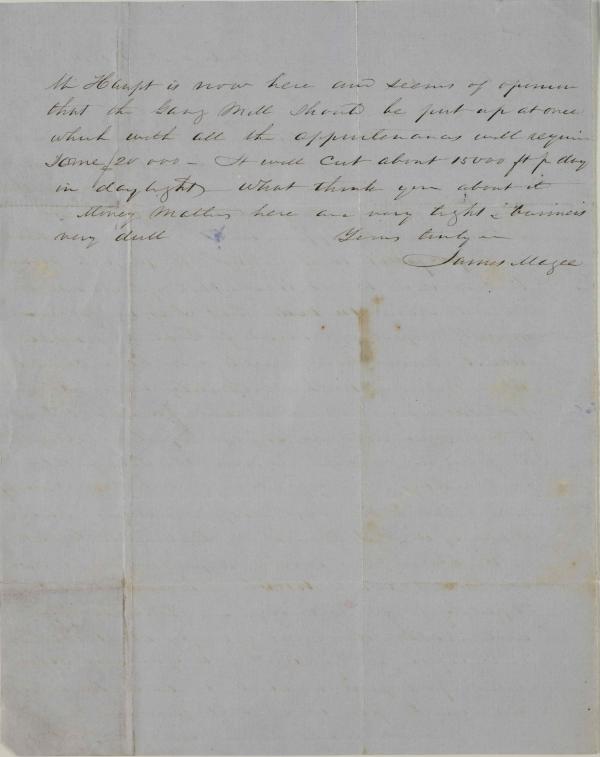 Mr Haupt is now here and seems of opinion
that the Gang Mill should be put up at once
which with all the appurtenances will require
some $20 000 - It will cut about 15000 ft p day
in daylight, What think you about it
Money Matters here are very tight & business
very dull
Yours truly
James Magee